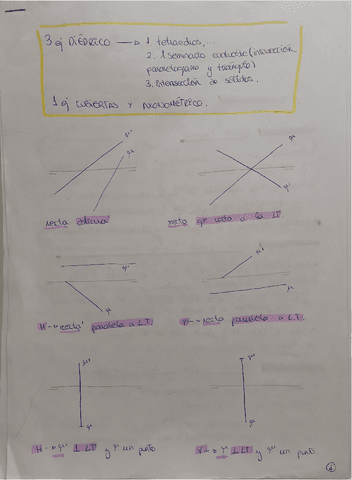 3 ej DIÉDRICO → 1 tetraedros,...
2. 1 seminario cualquiera (intersección
paralelogramo y triángulo)
3. intersección de sólidos.
1 ej CUBIERTAS Y AXONOMÉTRICO.
r'' r''
r' r'
recta oblicua recta que corta a la LT
r''
r'' r'
r'
H → recta' paralela a LT. V → recta paralela a LT.
r'' r''
r' r'
H → r'' ⊥ LT y r'' un punto V → r' ⊥ LT y r'' un punto
①